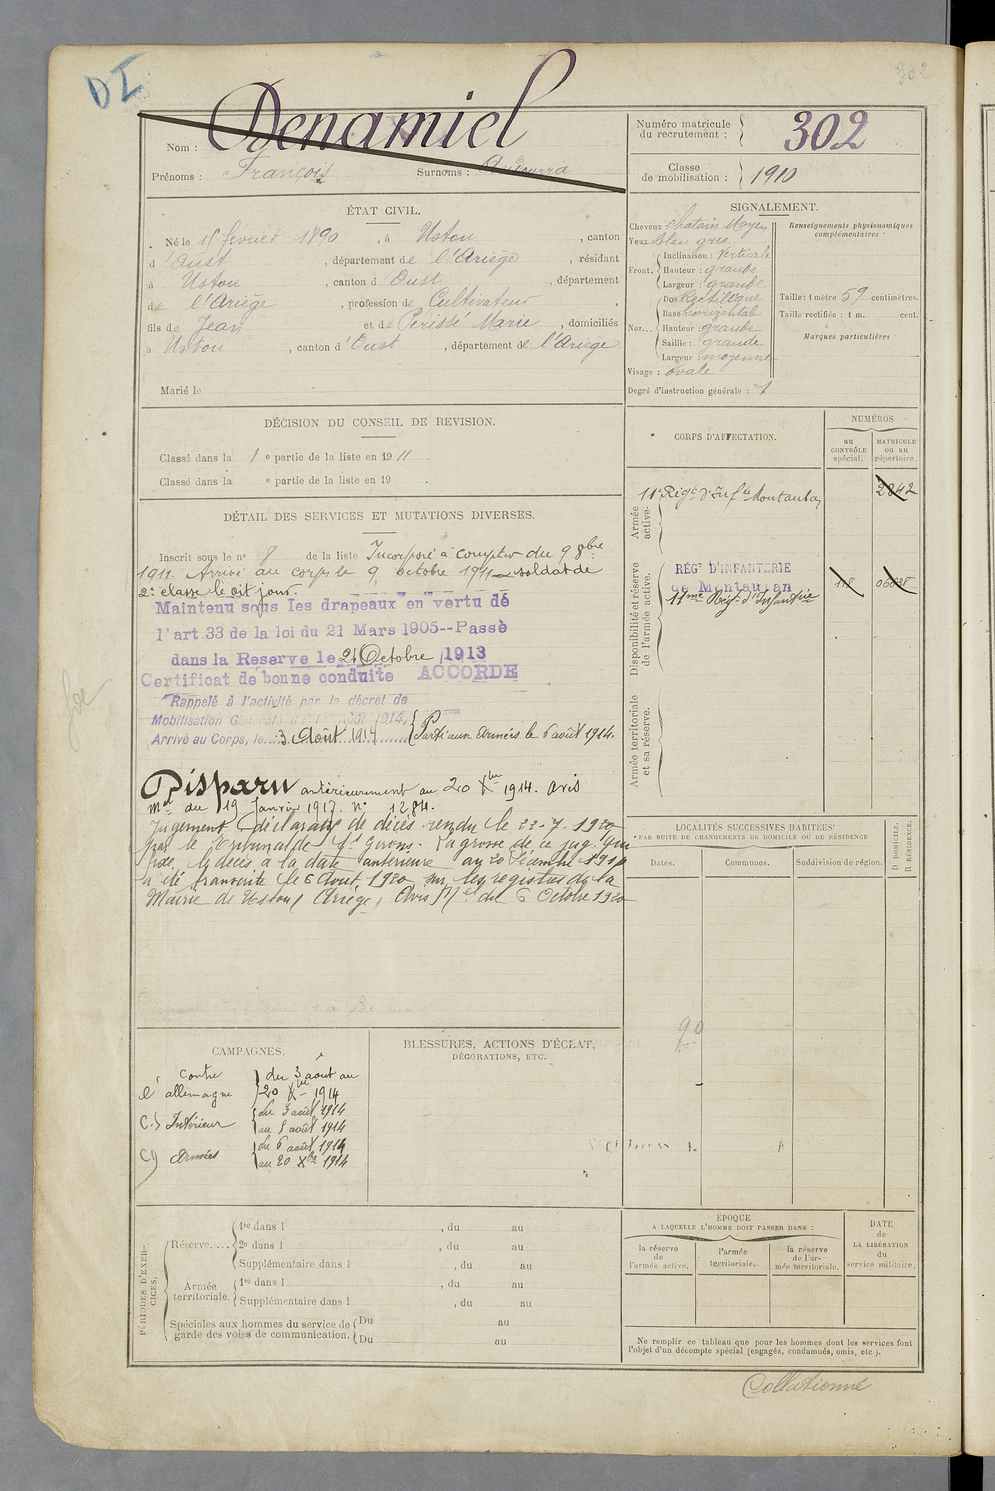 DI
302
Nom : Denamiel
Prénoms : François Surnoms : Andourra
Numéro matricule du recrutement : 302
Classe de mobilisation : 1910
ÉTAT CIVIL.
Né le 15 février 1890, à Ustou, canton
d'Oust, département de l'Ariège, résidant
à Ustou, canton d'Oust, département
de l'Ariège, profession de Cultivateur,
fils de Jean et de Périssé Marie, domiciliés
à Ustou, canton d'Oust, département de l'Ariège
Marié le
SIGNALEMENT.
Cheveux chatain Moyen
Yeux bleu gris
Front. Inclinaison : Verticale
Hauteur : grande
Largeur : grande
Nez... Dos Rectiligne
Base horizontale
Hauteur : grande
Saillie : grande
Largeur moyenne
Visage : ovale
Degré d'instruction générale :
Renseignements physionomiques complémentaires :
Taille : 1 mètre 59 centimètres.
Taille rectifiée : 1 m. cent.
Marques particulières
DÉCISION DU CONSEIL DE REVISION.
Classé dans la 1e partie de la liste en 1911.
Classé dans la e partie de la liste en 19
DÉTAIL DES SERVICES ET MUTATIONS DIVERSES.
Inscrit sous le n° 8 de la liste Incorporé à compter du 9 8bre
1911. Arrivé au corps le 9 octobre 1911 soldat de
2e classe le dit jour.
Maintenu sous les drapeaux en vertu de
l'art. 33 de la loi du 21 Mars 1905--Passé
dans la Reserve le Octobre 1913
Certificat de bonne conduite ACCORDÉ
Rappelé à l'activité par le décret de
Mobilisation Générale du 1er Août 1914,
Arrivé au Corps, le 3 Août 1914 Parti aux Armées le 6 août 1914.
Disparu antérieurement au 20 Xbre 1914. avis
Mel du 19 Janvier 1917. n° 1284.
Jugement déclaratif de décès rendu le 22-7-1920
par le Tribunal de St Girons. La grosse de ce jug. qui
fixe le décès à la date antérieure au 20 Décembre 1914
a été transcrite le 6 Août 1920 sur les registres de la
Mairie de Ustou, Ariège, Avis Mel du 6 Octobre 1920
CORPS D'AFFECTATION.
NUMÉROS
au CONTRÔLE spécial.
MATRICULE ou au répertoire.
Armée active.
11e Régt d'Infie Montauban
2842
Disponibilité et réserve de l'armée active.
RÉGT D'INFANTERIE
de Montauban
11me Régt d'Infanterie
118
Armée territoriale et sa réserve.
LOCALITÉS SUCCESSIVES HABITÉES
PAR SUITE DE CHANGEMENTS DE DOMICILE OU DE RÉSIDENCE
Dates.
Communes.
Subdivision de région.
D. DOMICILE.
R. RÉSIDENCE.
90
CAMPAGNES.
Contre
l'allemagne du 3 août au
20 Xbre 1914
C.) Intérieur du 3 août 1914
au 5 août 1914
C) Armées du 6 août 1914
au 20 Xbre 1914
BLESSURES, ACTIONS D'ÉCLAT,
DÉCORATIONS, ETC.
PÉRIODES D'EXERCICES.
Réserve.... 1re dans l , du au
2e dans l , du au
Supplémentaire dans l , du au
Armée territoriale. 1re dans l , du au
Supplémentaire dans l , du au
Spéciales aux hommes du service de garde des voies de communication. Du au
Du au
ÉPOQUE
A LAQUELLE L'HOMME DOIT PASSER DANS :
la réserve de l'armée active.
l'armée territoriale.
la réserve de l'armée territoriale.
DATE de LA LIBÉRATION du service militaire.
Ne remplir ce tableau que pour les hommes dont les services font
l'objet d'un décompte spécial (engagés, condamnés, omis, etc.).
Collationné